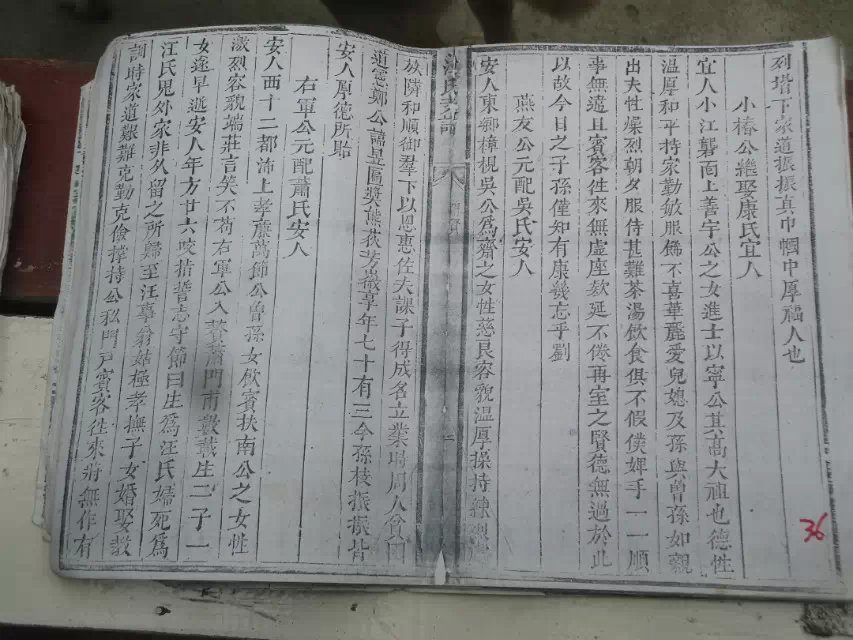 列堦下家道振振真巾幗中厚福人也
小椿公繼娶康氏宜人
宜人小江磐面上善宇公之女進士以寧公其高大祖也德性
温厚和平持家勤敏服飾不喜華麗愛兒媳及孫與曾孫如親
出夫性燥烈朝夕服侍甚難茶湯飲食俱不假僕婢手一一順
事無違且賓客徃來無虛座款延不倦再室之賢德無過於此
以故今日之子孫僅知有康幾忘乎劉
燕友公元配吳氏安人
安人東鄉樟梘吳公為齋之女性慈良容貌温厚操持
汪氏
於隣和順御羣下以恩惠佐夫課子得成名立業時周人食口
道憲鄭公 旌匾獎熊荻芳徽享年七十有三今孫枝振振皆
安人厚德所貽
右軍公元配蕭氏安人
安人西十二都沛上孝廉萬節公曾孫女飲賓扶南公之女性
激烈容貌端莊言笑不苟右軍公入贅蕭門市數載生二子一
女遂早逝安人年方廿六咬指誓志守節曰生為汪氏婦死為
汪氏鬼外家非久留之所歸至汪事翁姑極孝撫子女婚娶教
訓時家道艱難克勤克儉撑持公私門戸賓客徃來將無作有
36